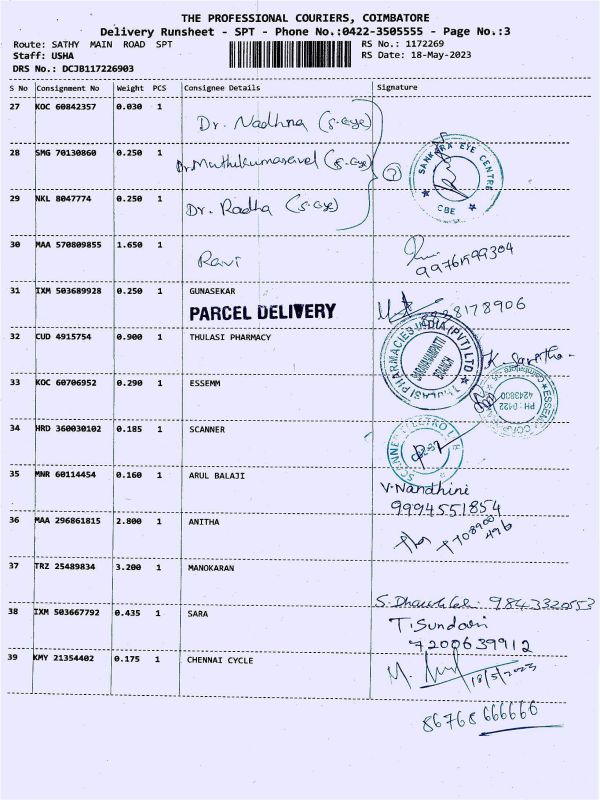 THE PROFESSIONAL COURIERS, COIMBATORE
Delivery Runsheet - SPT - Phone No.:0422-3505555 - Page No.:3
Route: SATHY MAIN ROAD SPT RS No.: 1172269
Staff: USHA RS Date: 18-May-2023
DRS No.: DCJB117226903
S No Consignment No Weight PCS Consignee Details Signature
27 KOC 60842357 0.030 1 Dr. Nadhna (S-eye)
28 SMG 70130860 0.250 1 Dr. Muthukumaravel (S-eye)
SANKARA EYE CENTRE
CBE
29 NKL 8047774 0.250 1 Dr. Radha (S-eye)
30 MAA 570809855 1.650 1 Ravi
31 IXM 503689928 0.250 1 GUNASEKAR
PARCEL DELIVERY
32 CUD 4915754 0.900 1 THULASI PHARMACY
THULASI PHARMACIES INDIA (PVT) LTD
SARAVANAMPATTI
BRANCH
33 KOC 60706952 0.290 1 ESSEMM
PH : 0422
4243800
34 HRD 360030102 0.185 1 SCANNER
35 MNR 60114454 0.160 1 ARUL BALAJI
V. Nandhini
9994551854
36 MAA 296861815 2.800 1 ANITHA
37 TRZ 25489834 3.200 1 MANOKARAN
9843320553
38 IXM 503667792 0.435 1 SARA
T. Sundari
7200639912
39 KMY 21354402 0.175 1 CHENNAI CYCLE
18/5/2023
86768 666666